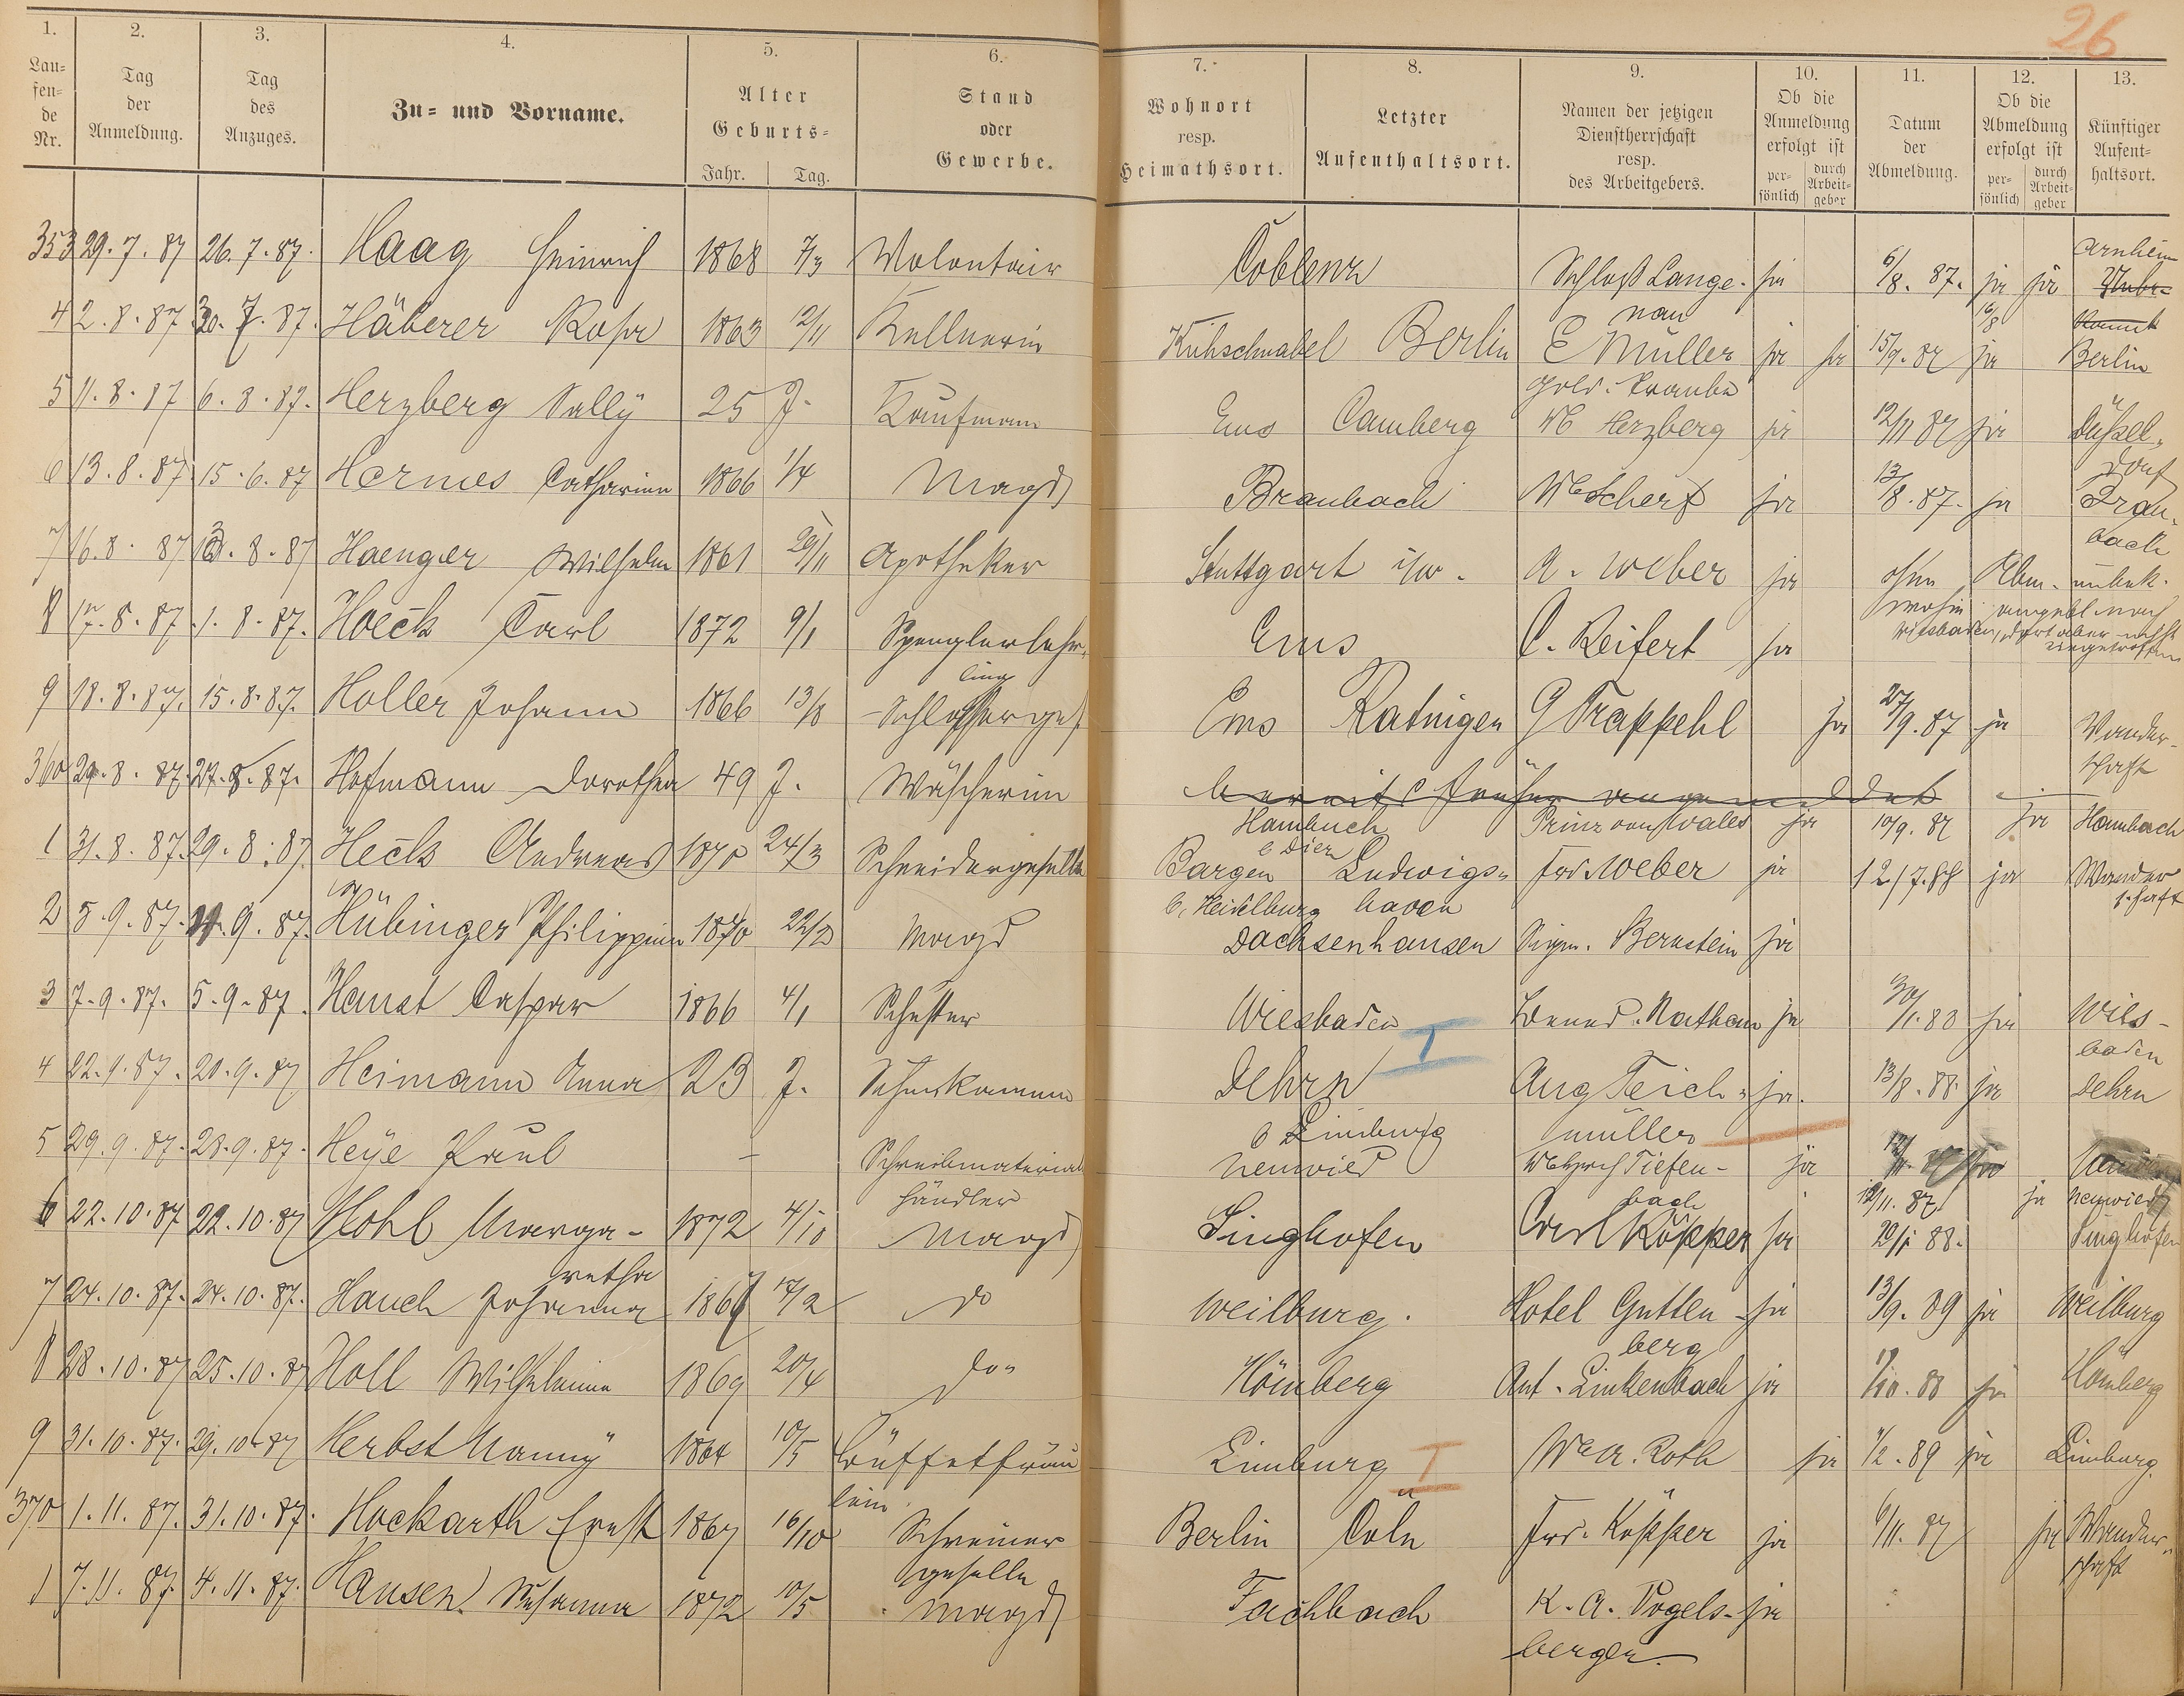 26
1. 2. 3. 4. 5. 6. 7. 8. 9. 10. 11. 12. 13.
Lau=
fen=
de
Nr.
Tag
der
Anmeldung.
Tag
des
Anzuges.
Zu= und Vorname.
Alter
Geburts=
Jahr. Tag.
Stand
oder
Gewerbe.
Wohnort
resp.
Heimathsort.
Letzter
Aufenthaltsort.
Namen der jetzigen
Dienstherrschaft
resp.
des Arbeitgebers.
Ob die
Anmeldung
erfolgt ist
per=
sönlich
durch
Arbeit=
geber
Datum
der
Abmeldung.
Ob die
Abmeldung
erfolgt ist
per=
sönlich
durch
Arbeit=
geber
Künftiger
Aufent=
haltsort.
353 29.7.87 26.7.87. Haag Heinrich 1868 7/3 Volontair Coblenz Schloß Lange- ja 6/8. 87. ja ja Arnheim
nau 16/8
4 2.8.87 30.7.87. Häberer Rosa 1863 12/11 Kellnerin Kühschnabel Berlin E Müller ja ja 15/9. 87 ja Berlin
gold. Traube
5 11.8.87 6.8.87. Herzberg Sally 25 J. Kaufmann Ems Camberg We Herzberg ja 12/11 87 ja Düssel-
dorf
6 13.8.87 15.6.87 Hermes Catharina 1866 1/4 Magd Braubach We Scherf ja 13/8. 87. ja Brau-
bach
7 16.8.87 8.87 Haenger Wilhelm 1861 29/11 Apotheker Stuttgart i/w. A. Weber ja ohne Abm. unbek.
wohin angebl. nach
Wiesbaden, dort aber nicht
angetroffen
8 17.8.87. 1.8.87. Hoeck Carl 1872 9/1 Spenglerlehr-
ling Ems C. Reifert ja
9 18.8.87. 15.8.87. Holler Johann 1866 13/8 Schlosserges. Ems Ratingen G Trappehl ja 27/9. 87 ja Wander-
schaft
360 29.8.87. 27.8.87. Hofmann Dorothea 49 J. Wäscherin bereits früher angemeldet
Hambuch Prinz von Wales ja 10/9. 87 ja Hambach
b Diez
1 31.8.87. 29.8.87. Heck Andreas 1870 24/3 Schneidergeselle Bargen Ludwigs- Frd. Weber ja 12/7.88 ja Wander
schaft
b. Heidelburg haven
2 5.9.87. 9.87. Hübinger Philippine 1870 22/2 Magd Dachsenhausen Sigm. Bernstein ja
3 7.9.87. 5.9.87. Hanst Caspar 1866 4/1 Schuster Wiesbaden Nathan ja 30/1. 88 ja Wies-
baden
4 22.9.87. 20.9.87 Heimann Anna 23 J. Dehrn I Aug Teich- ja. 13/8. 88. ja Dehrn
b Limburg müller
5 29.9.87. 28.9.87. Heye Paul – Schreibmaterial
händler Neuwied Tiefen- ja
bach 12/11. 87 ja Neuwied
6 22.10.87 22.10.87 Hohl Marga-
retha 1872 4/10 Magd Singhofen Carl Köpper ja 20/1 88. Singhofen
7 24.10.87. 24.10.87. Hauch Johanna 1867 17/2 do Weilburg. Hotel Gutten- ja 13/9. 89 ja Weilburg
berg
8 28.10.87 25.10.87 Holl Wilhelmine 1869 20/4 do. Hömberg Ant. Linkenbach ja 1/10. 88 ja Hömberg
9 31.10.87. 29.10.87 Herbst Nanny 1864 10/5 Büffetfräu
lein. Limburg I We A. Roth ja 1/2. 89 ja Limburg.
370 1.11.87. 31.10.87. Hockarth Ernst 1867 16/10 Schreiner
geselle Berlin Cöln Frd. Köpper ja 6/11. 87 ja Wander-
schaft
1 7.11.87. 4.11.87. Hansen Susanna 1872 10/5 Magd Fachbach K. A. Vogels- ja
berger.